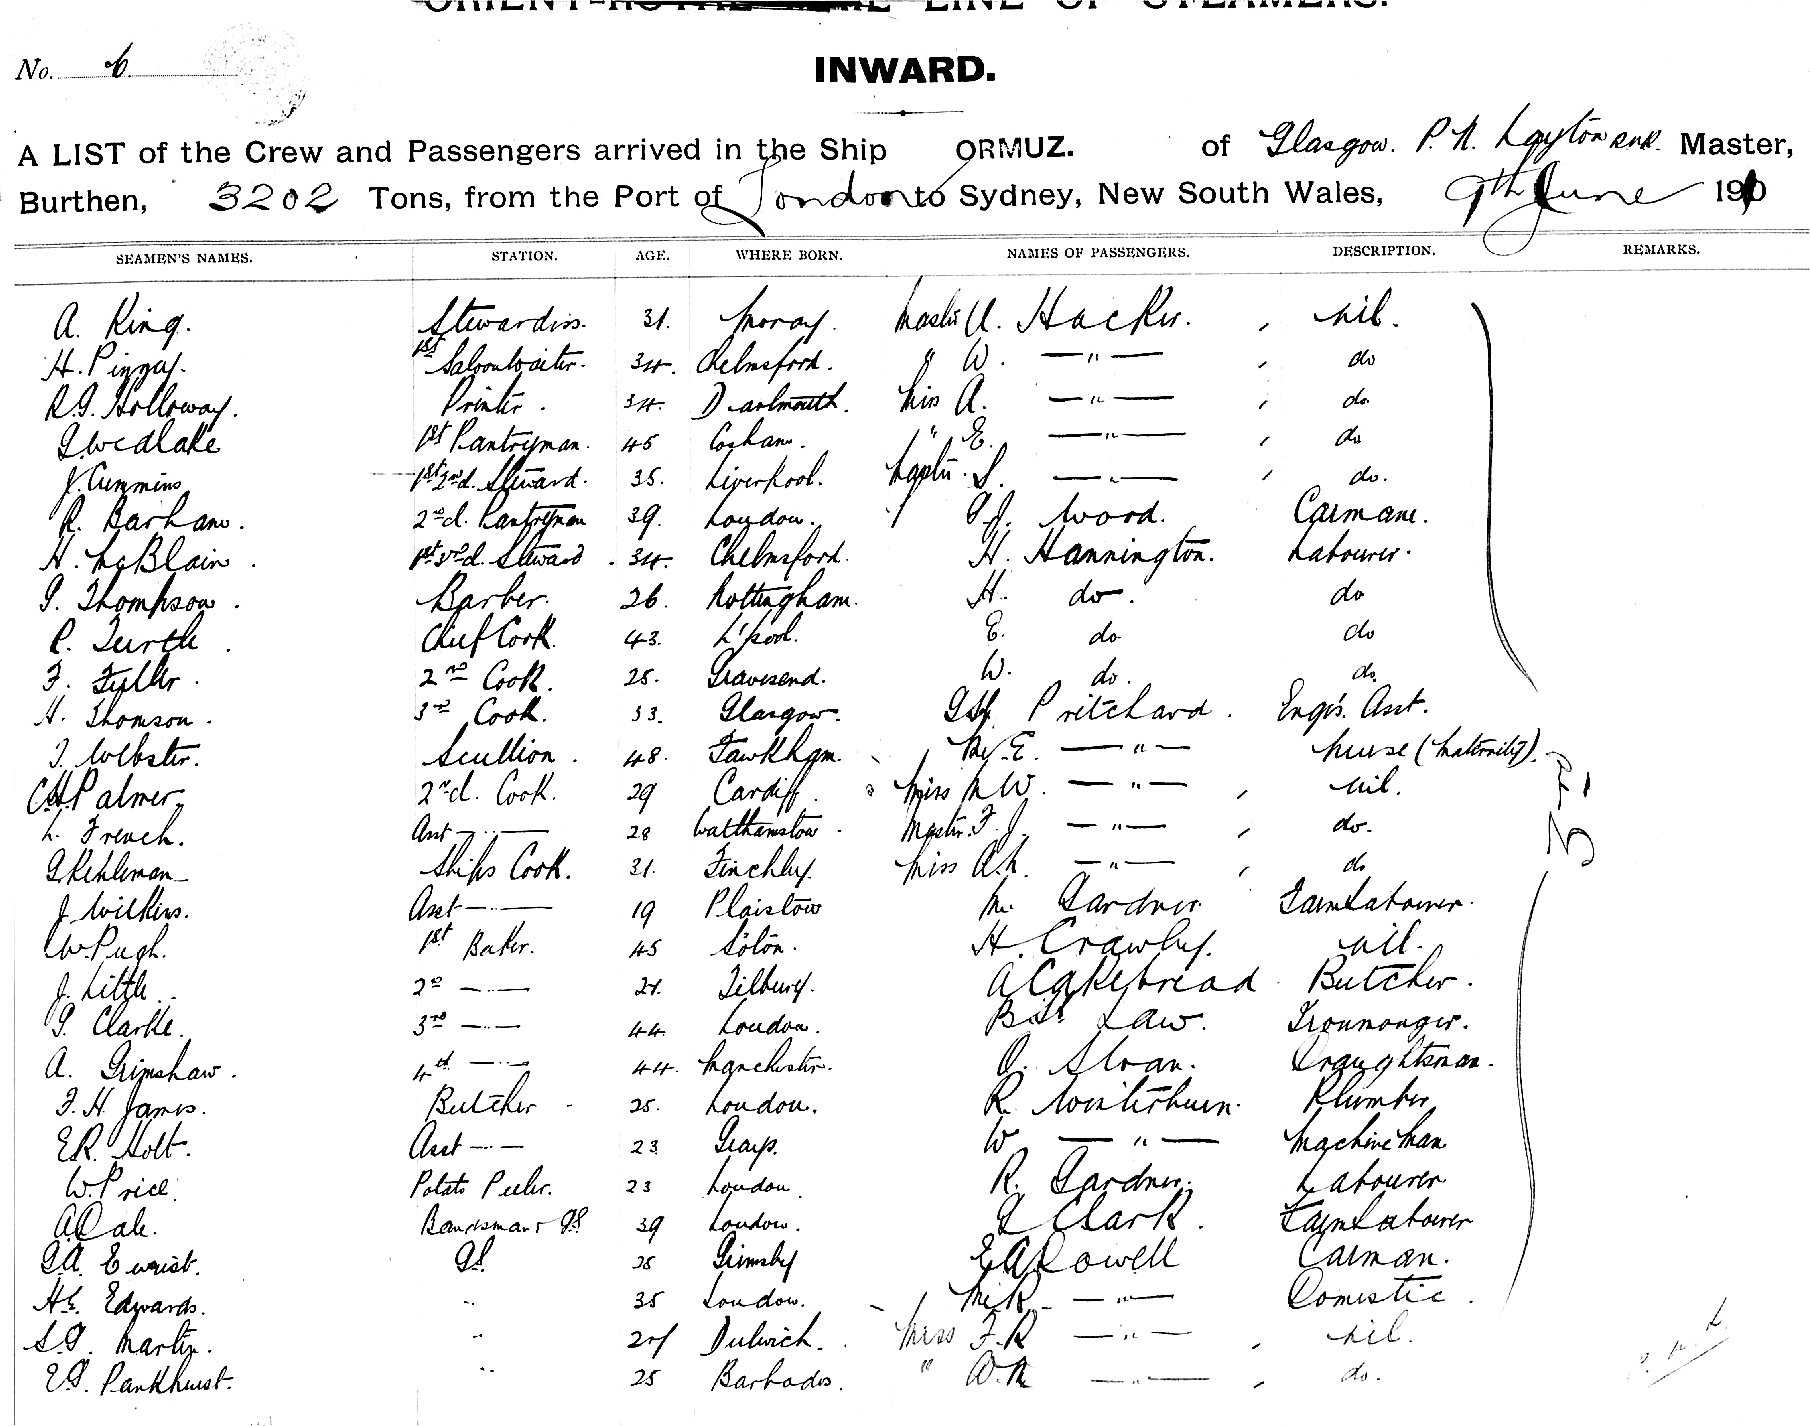 ORIENT-ROYAL MAIL LINE OF STEAMERS.
No. 6.
INWARD.
A LIST of the Crew and Passengers arrived in the Ship ORMUZ. of Glasgow. P. N. Layton RNR. Master,
Burthen, 3202 Tons, from the Port of London to Sydney, New South Wales, 9th June 1910
SEAMEN'S NAMES. STATION. AGE. WHERE BORN. NAMES OF PASSENGERS. DESCRIPTION. REMARKS.
A. King. Stewardess. 31. Moray. Master A. Hacker. , nil.
H. Piggay. 1st Saloon Waiter. 34. Chelmsford. " W. —"— , do
R.G. Holloway. Printer. 34. Dartmouth. Miss A. —"— , do.
G. Wedlake 1st Pantryman. 45 Cosham. " E. —"— , do
J. Cummins 1st 2nd. Steward. 35. Liverpool. Master. S. —"— , do.
R. Barham. 2nd. Pantryman 39. London. G.J. Wood. Carman.
H. McBlain. 1st 3rd. Steward. 34. Chelmsford. H. Hannington. Labourer.
G. Thompson. Barber. 26. Nottingham. H. do. do
P. Turtle. Chief Cook. 43. L'pool. E. do do
F. Fuller. 2nd Cook. 28. Gravesend. W. do. do.
H. Thomson. 3rd Cook. 33. Glasgow. Pritchard. Engrs. Asst.
J. Webster. Scullion. 48. Fawkham. , E. —"— Nurse (Maternity).
C.H. Palmer. 2nd. Cook. 29 Cardiff. Miss M W. —"— , nil.
L. French. Asst —"— 28 Walthamstow. Master. F. J. —"— , do.
G. Kehleman Ships Cook. 31. Finchley. Miss A.M. —"— , do
J. Wilkins. Asst —"— 19 Plaistow M. Gardner Farm Labourer.
W. Pugh. 1st Baker. 45 Soton. H. Crawley. nil.
J. Little. 2nd —"— 21. Tilbury. A Cakebread Butcher.
G. Clarke. 3rd —"— 44 London. Law. Ironmonger.
A. Grimshaw. 4th —"— 44. Manchester. O. Sloan. Draughtsman.
F. H. James. Butcher 25. London. R. Winterburn. Plumber
E.R. Holt. Asst —"— 23 Grays. W —"— Machine Man
W. Price. Potato Peeler. 23 London R. Gardner. Labourer
A. Dale. Bandsman & GS 39 London. G Clark. Farm Labourer
G.A. Ewrist. GS. 28 Grimsby E A Rowell Carman.
H.E. Edwards. " 35 London. R —"— Domestic.
S.G. Martin. " 27 Dulwich. Miss F. R —"— , nil.
E.G. Pankhurst. " 25 Barbados. " W. R —"— , do.